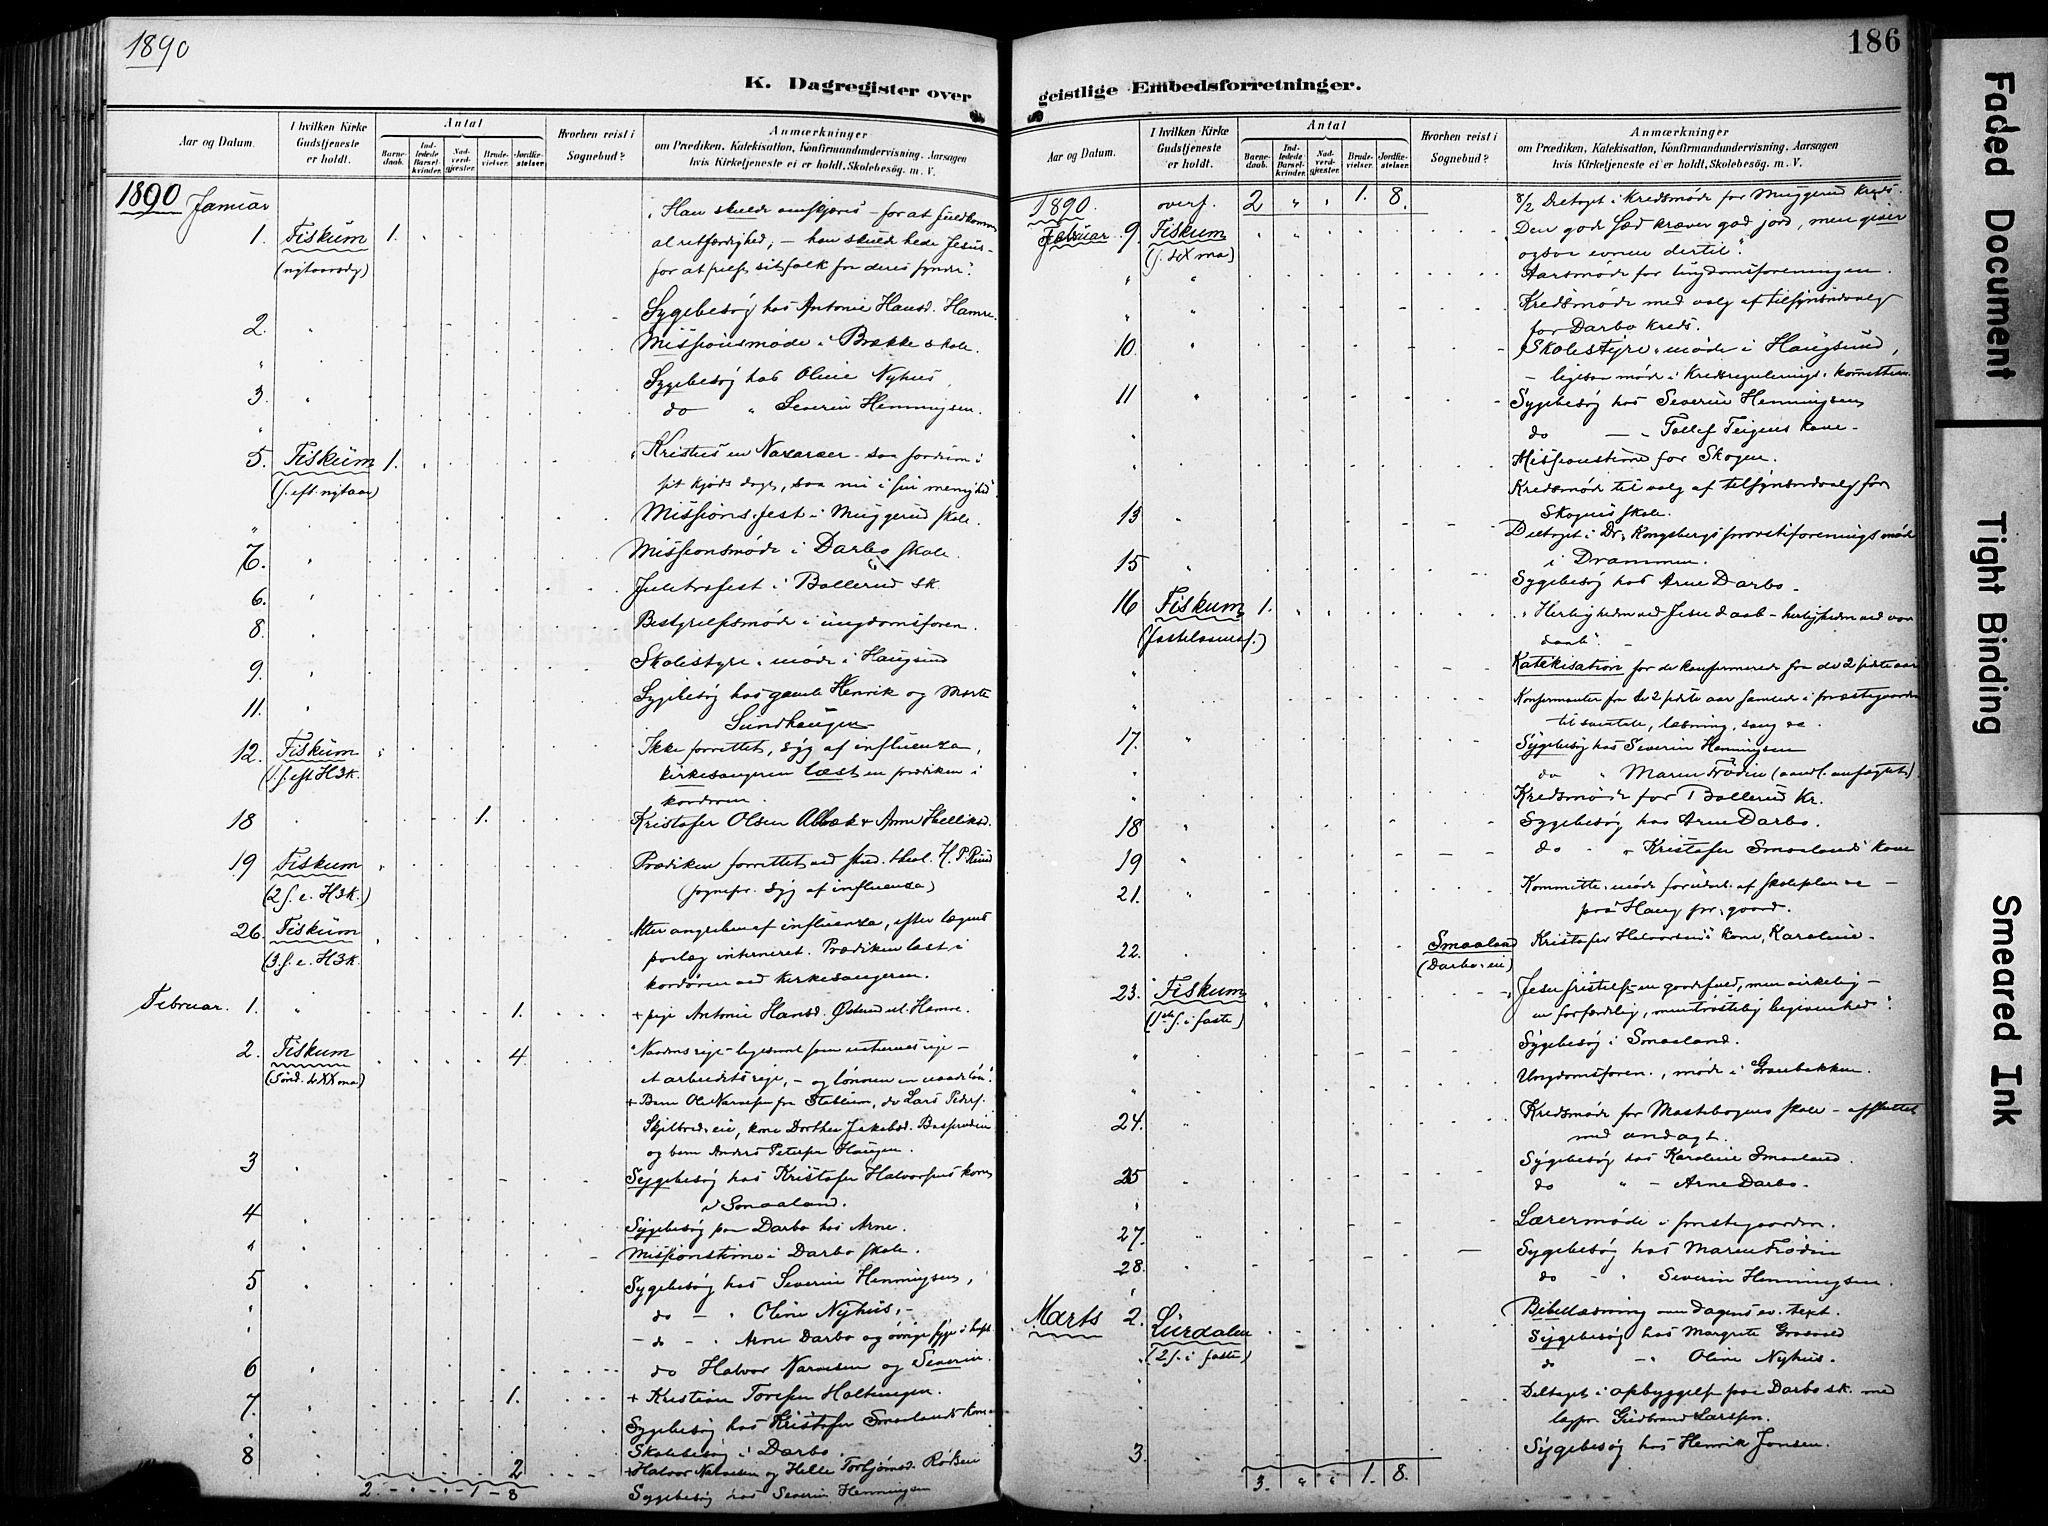 1890
K. Dagregister over
Aar og Datum.
I hvilken Kirke Gudstjeneste er holdt.
Antal
Barne-daab.
Ind-ledede Barsel-kvinder.
Nad-verd-gjæster.
Brude-vielser.
Jordfæ-stelser.
Hvorhen reist i Sognebud?
Anmærkninger
om Prædiken, Katekisation, Konfirmandundervisning, Aarsagen
hvis Kirketjeneste ei er holdt, Skolebesøg, m. V.
1890 Januar
1. Fiskum 1. "Han skulde omskjæres - for at fuldkomme
(nytaarsdg) al retfærdighed, - han skulde hede Jesus -
for at frelse sit folk fra deres synder".
2. Sygebesøg hos Antonie Hansd. Hamre.
" Missionsmøde i Brække skole.
3. Sygebesøg hos Oline Nyhus,
" do " Severin Henningsen.
5. Fiskum 1. "Kristus en Nazaræer - saa fordum i
(s. eft. nytaar) sit kjøds dage, saa nu i sin menighed".
" Missionsfest i Muggerud skole.
7. Missionsmøde i Darbo skole.
6. Juletræfest i Bollerud sk.
8. Bestyrelsesmøde i ungdomsforen.
9. Skolestyremøde i Haugsund
11. Sygebesøg hos gamle Henrik og Marte
Sundhaugen
12. Fiskum Ikke forrettet, syg af influenza,
(1. s. eft. H3k. kirkesangeren læst en prædiken i
kordøren.
18 1. Kristofer Olsen Albæk & Anne Helliksd.
19 Fiskum Prædiken forrettet ved stud. theol. H. P. Ruud
(2 s. e. H3k.) (sognepr. syg af influenza)
26. Fiskum Atter angreben af influenza, efter lægens
(3. s. e. H3k. paalæg interneret. Prædiken læst i
kordøren ved kirkesangeren.
Februar. 1. 1. + pige Antonie Hansd. Østerud ul. Hamre.
2. Fiskum 4.
(Sønd. d. XX ma)
et arbeidets rige, - og lønnen en naadeløn".
+ Barn Ole Narvesen fra Stablum, do Lars Peders.
Skjelbred.eie, kone Dorthea Jakobsd.
og barn Anders Petersen Haugen.
3 Sygebesøg hos Kristofer Halvorsens kone
i Smaaland.
4 Sygebesøg paa Darbo hos Arne.
" Missionstime i Darbo skole.
5 Sygebesøg hos Severin Henningsen,
" do - " Oline Nyhus, -
" - do - " Arne Darbo og øvrige syge i huset
6 do Halvor Narvesen og Severin.
7. 1. + Kristian Toresen Holtungen.
Sygebesøg hos Kristofer Smaalands kone
Skolebesøg i Darbo.
8 2 + Halvor Narvesen og Helle Torbjørnsd. Rødsen
2 - " - " - 1 - 8 Sygebesøg hos Severin Henningsen
186
geistlige Embedsforretninger.
Aar og Datum.
I hvilken Kirke Gudstjeneste er holdt.
Antal
Barne-daab.
Ind-ledede Barsel-kvinder.
Nad-verd-gjæster.
Brude-vielser.
Jordfæ-stelser.
Hvorhen reist i Sognebud?
Anmærkninger
om Prædiken, Katekisation, Konfirmandundervisning, Aarsagen
hvis Kirketjeneste ei er holdt, Skolebesøg, m. V.
1890. overf. 2 " " 1. 8. 8/2 Deltaget i Kredsmøde for Muggerud Kreds.
Februar 9. Fiskum "Den gode Sæd kræver god jord, men giver
(s. d. LX ma) ogsaa evnen dertil".
" Aarsmøde for Ungdomsforeningen.
" Kredsmøde med valg af tilsynsudvalg
for Darbo Kreds.
10. Skolestyremøde i Haugsund,
- ligesaa møde i Kredsregulerings.komitteen.
11 Sygebesøg hos Severin Henningsen
" do - " Tollef Teigens kone -
" Missionstime for Skogen.
Kredsmøde til valg af tilsynsudvalg for
13 Skogens skole.
Deltaget i Dr. Kongsbergs provstiforenings møde
15 i Drammen.
Sygebesøg hos Arne Darbo.
16 Fiskum 1. "Herligheden ved Jesu daab - herligheden ved vor
(fastelavnss.) daab".
" Katekisation for de konfirmerede fra de 2 sidste aar
" Konfirmanter fra de 2 sidste aar samlede i præstegaarden
til samtale, læsning, sang &c.
17. Sygebesøg hos Severin Henningsen
" do " Maren Frödin (aandl. anfægtet).
" Kredsmøde for Bollerud Kr.
18 Sygebesøg hos Arne Darbo.
19 do - " Kristofer Smaalands kone
21. Kommitte.møde for udarb. af skoleplan &c -
paa Haug pr.gaard.
22. Smaaland Kristofer Halvorsens kone, Karoline -
(Darbo.eie)
23. Fiskum "Jesu fristelse en gaadefuld, men virkelig -
(1ste s. i faste) en forfærdelig, men trøstelig begivenhed".
" Sygebesøg i Smaaland.
" Ungdomsforen., møde i Granbakken.
24. Kredsmøde for Mastebogens skole - afsluttet
med andagt.
25 Sygebesøg hos Karoline Smaaland.
" do " - Arne Darbo.
27. Lærermøde i præstegaarden.
28. Sygebesøg hos Maren Frödin
" do - " Severin Henningsen.
Marts 2. Lurdalen Bibellæsning over dagens ev. text.
(2 s. i faste) Sygebesøg hos Margrete
do - " Oline Nyhus.
" Deltaget i opbyggelse paa Darbo sk. med
lægpr. Gudbrand Larssen.
3. Sygebesøg hos Henrik Jonsen.
3. " " 1. 8.
Faded Document
Tight Binding
Smeared Ink